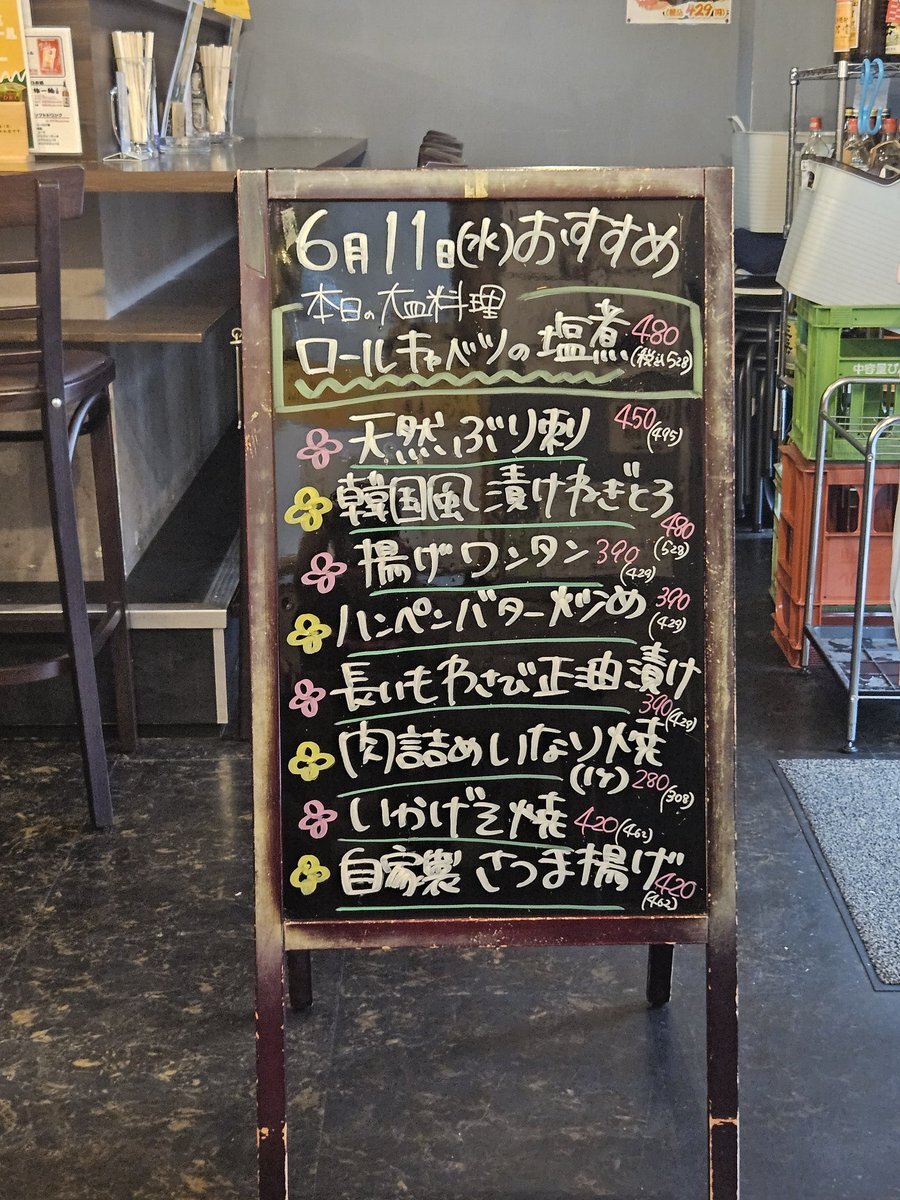 (税込429円)
6月11日(水)おすすめ
本日の大皿料理
ロールキャベツの塩煮 480
(税込528)
天然ぶり刺 450
(495)
韓国風漬けねぎとろ
480
(528)
揚げワンタン 390
(429)
ハンペンバター炒め 390
(429)
長いもわさび正油漬け
390(429)
肉詰めいなり焼
(1ケ) 280
(308)
いかげそ焼 420(462)
自家製さつま揚げ 420
(462)
中容量び